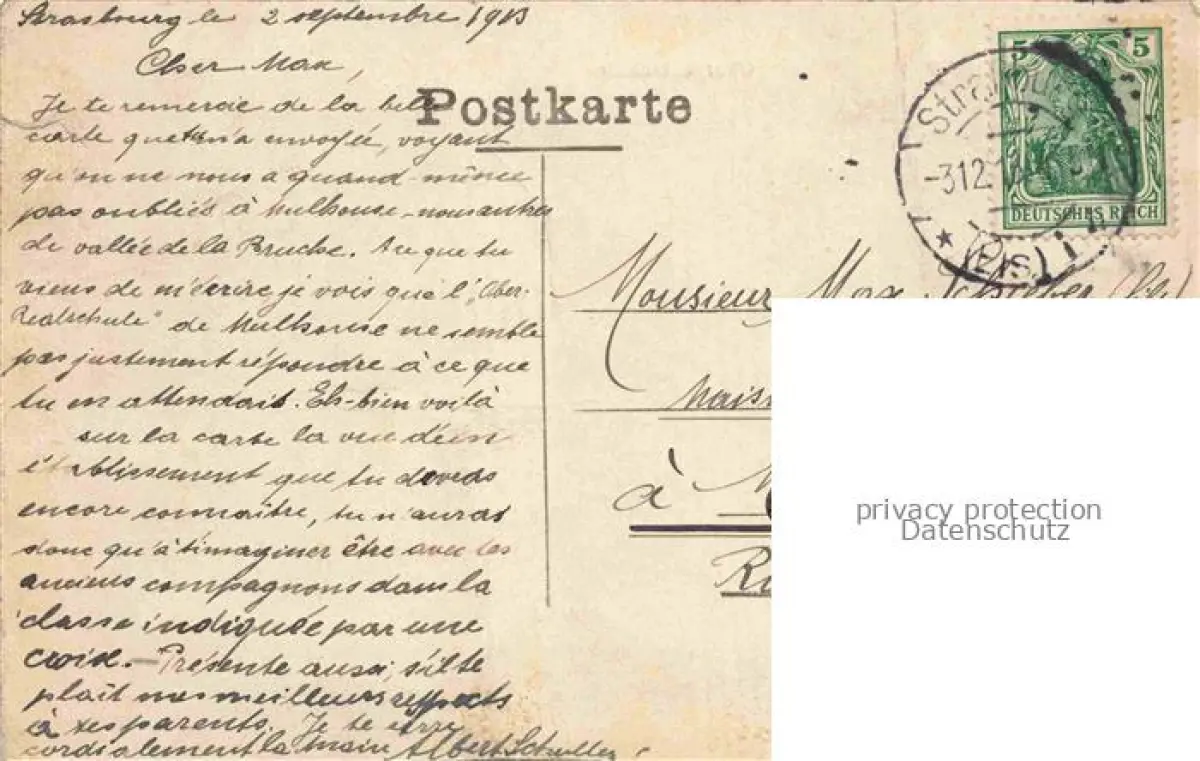 Strasbourg le 2 septembre 1913
Cher Max,
Je te remercie de la belle
carte que tu m'a envoyée, voyant
qu'on ne nous a quand-même
pas oubliés à Mulhouse, nous autres
de vallée de la Bruche. Au que tu
viens de m'écrire je vois que l'„Ober-
Realschule" de Mulhouse ne semble
pas justement répondre à ce que
tu en attendait. Eh-bien voilà
sur la carte la vue d'un
établissement que tu dovras
encore connaître, tu n'auras
donc qu'à t'imaginer être avec les
anciens compagnons dans la
classe indiquée par une
croix. — Présente aussi, s'il te
plaît mes meilleurs respects
à tes parents. Je te serre
cordialement la main Albert Schuller
Postkarte
5 5
DEUTSCHES REICH
Strassburg
-3.12.
(Els.)
Monsieur Max
Mais
à M
Ru
privacy protection
Datenschutz